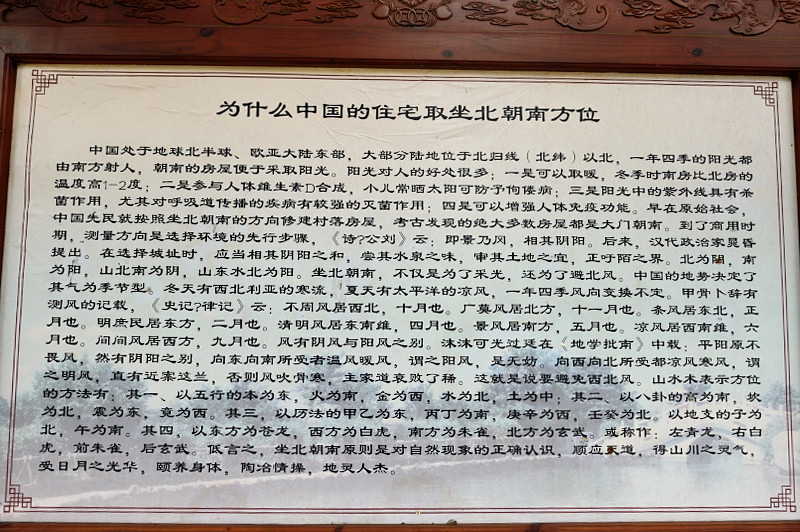 为什么中国的住宅取坐北朝南方位
中国处于地球北半球、欧亚大陆东部，大部分陆地位于北归线（北纬）以北，一年四季的阳光都
由南方射人，朝南的房屋便于采取阳光。阳光对人的好处很多：一是可以取暖，冬季时南房比北房的
温度高1-2度；二是参与人体维生素D合成，小儿常晒太阳可防予佝偻病；三是阳光中的紫外线具有杀
菌作用，尤其对呼吸道传播的疾病有较强的灭菌作用；四是可以增强人体免疫功能。早在原始社会，
中国先民就按照坐北朝南的方向修建村落房屋，考古发现的绝大多数房屋都是大门朝南。到了商用时
期，测量方向是选择环境的先行步骤，《诗?公刘》云：即景乃风，相其阴阳。后来，汉代政治家晁昏
提出。在选择城址时，应当相其阴阳之和，尝其水泉之味，审其土地之宜，正呼陌之界。北为阴，南
为阳，山北南为阴，山东水北为阳。坐北朝南，不仅是为了采光，还为了避北风。中国的地势决定了
其气为季节型。冬天有西北利亚的寒流，夏天有太平洋的凉风，一年四季风向变换不定。甲骨卜辞有
测风的记载，《史记?律记》云：不周风居西北，十月也。广莫风居北方，十一月也。条风居东北，正
月也。明庶民居东方，二月也。清明风居东南维，四月也。景风居南方，五月也。凉风居西南维，六
月也。间间风居西方，九月也。风有阴风与阳风之别。沫沫可光过廷在《地学批南》中载：平阳原不
畏风，然有阴阳之别，向东向南所受者温风暖风，谓之阳风，是无妨。向西向北所受都凉风寒风，谓
之明风，直有近案这兰，否则风吹骨寒，主家道衰败了稀。这就是说要避免西北风。山水木表示方位
的方法有：其一、以五行的本为东，火为南，金为西，水为北，土为中；其二、以八卦的高为南，坎
为北，震为东，竟为西。其三，以厉法的甲乙为东，丙丁为南，庚辛为西，壬癸为北。以地支的子为
北，午为南。其四，以东方为苍龙，西方为白虎，南方为朱雀，北方为玄武。或称作：左青龙，右白
虎，前朱雀，后玄武。低言之，坐北朝南原则是对自然现象的正确认识，顺应天道，得山川之灵气，
受日月之光华，颐养身体，陶冶情操，地灵人杰。